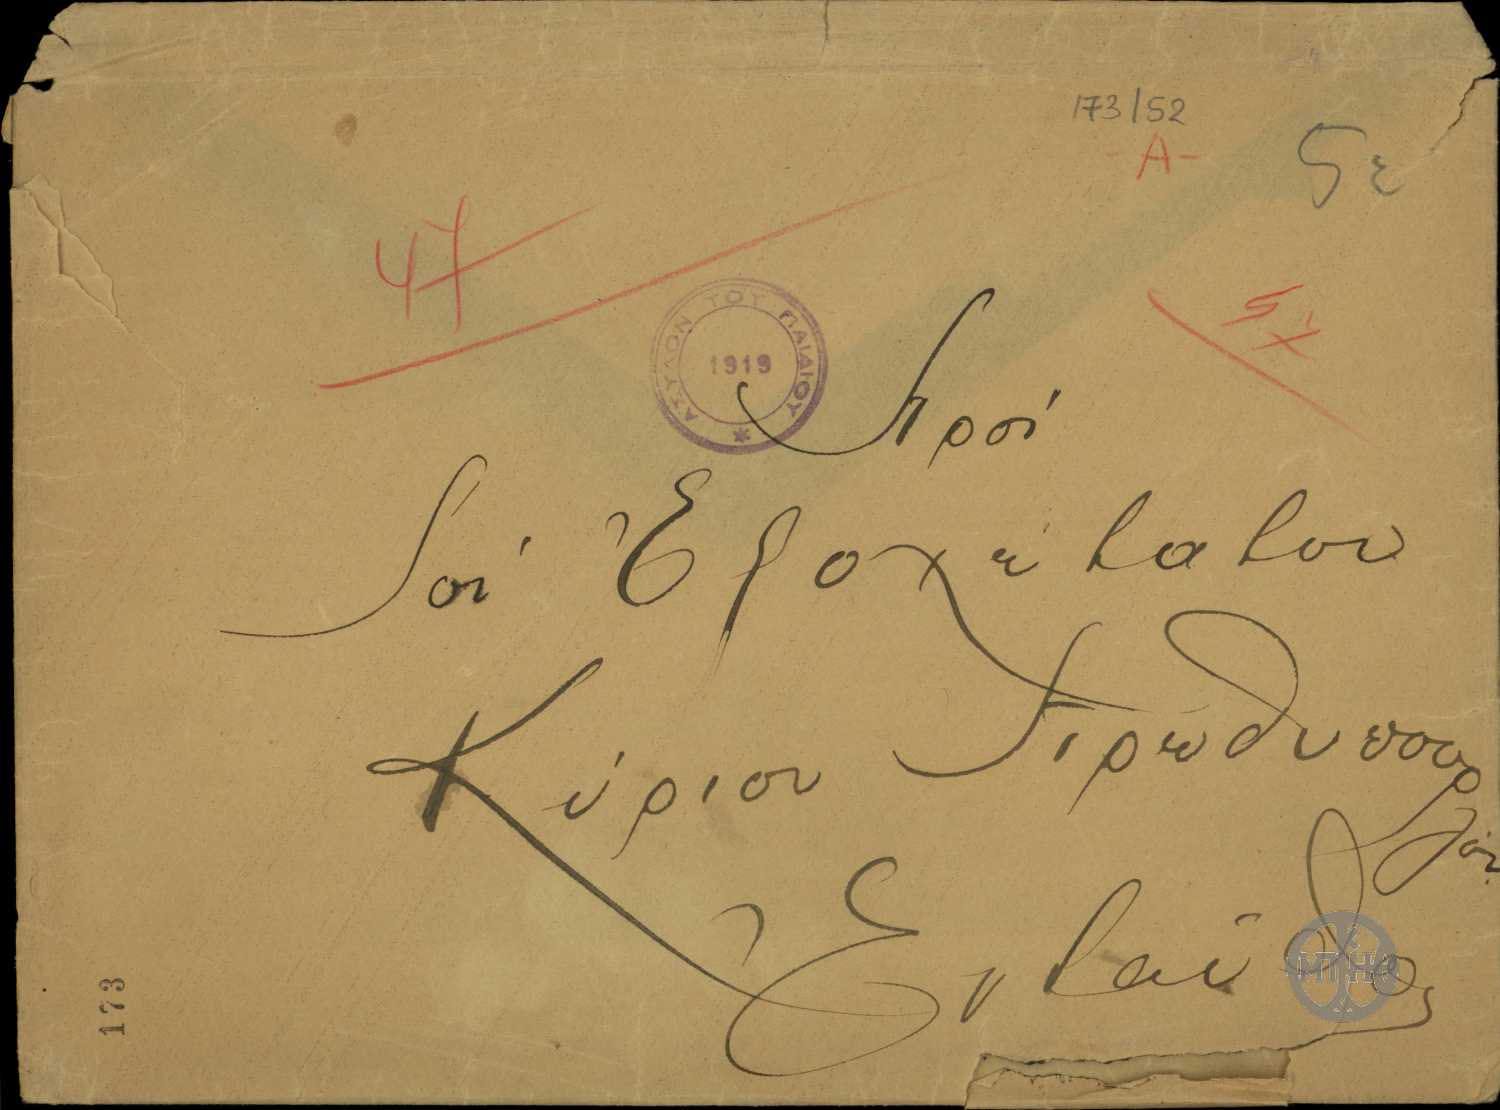 173/52
-A-
47
ΑΣΥΛΟΝ ΤΟΥ ΠΑΙΔΙΟΥ
1919
Πρός
Τόν Ἐξοχώτατον
Κύριον Πρωθυπουργόν
Ἐνταῦθα
173